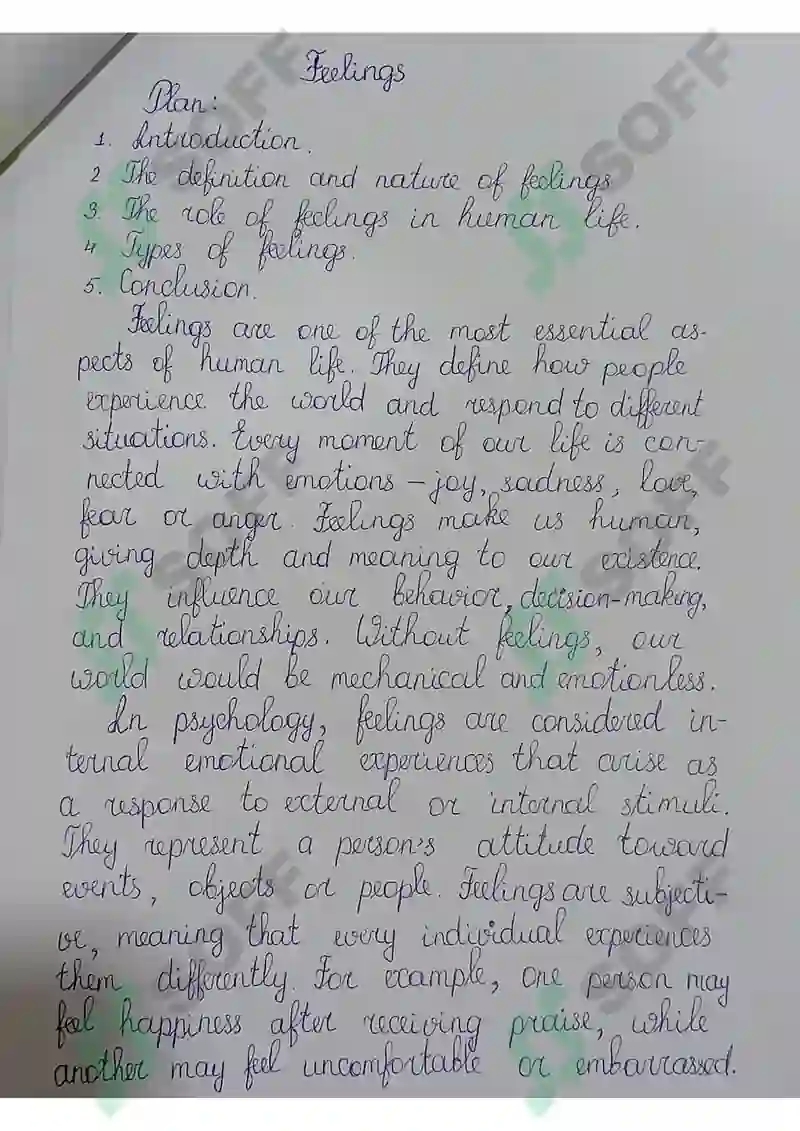 Feelings
Plan:
1. Introduction.
2 The definition and nature of feelings
3. The role of feelings in human life.
4 Types of feelings.
5. Conclusion.
Feelings are one of the most essential as-
pects of human life. They define how people
experience the world and respond to different
situations. Every moment of our life is con-
nected with emotions – joy, sadness, love,
fear or anger. Feelings make us human,
giving depth and meaning to our existence.
They influence our behavior, decision-making,
and relationships. Without feelings, our
world would be mechanical and emotionless.
In psychology, feelings are considered in-
ternal emotional experiences that arise as
a response to external or internal stimuli.
They represent a person's attitude toward
events, objects or people. Feelings are subjecti-
ve, meaning that every individual experiences
them differently. For example, one person may
feel happiness after receiving praise, while
another may feel uncomfortable or embarrassed.
SOFF
SOFF
SOFF
SOFF
SOFF
SOFF